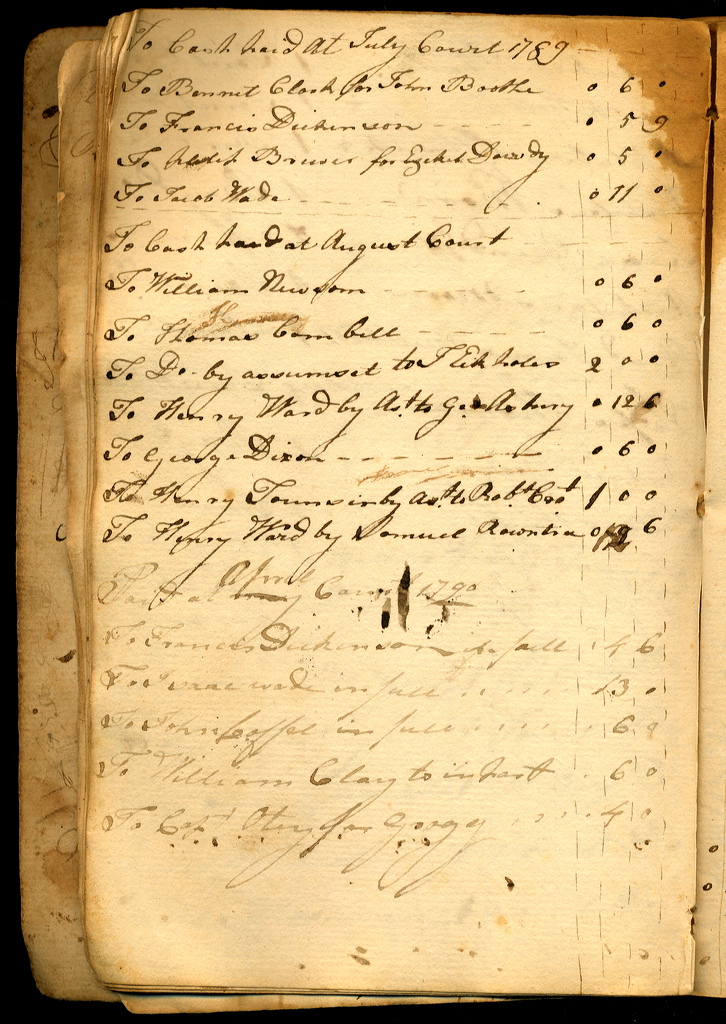 To Cash paid At July Court 1789
To Bennet Clark for John Boothe 0 6 0
To Francis Dickenson 0 5 9
To Brewer for Ezekel Dowdy 0 5 0
To Jacob Wade 0 11 0
To Cash paid at August Court
To William Newsom 0 6 0
To Thomas Cambell 0 6 0
To Do by assumset to T Eckholes 2 0 0
To Henry Ward by Ast to Geo Asbury 0 12 6
To George Dixon 0 6 0
To Henry Townsin by Ast to Robt 1 0 0
To Henry Ward by Samuel Rowntin 0 12 6
Paid at April Court 1790
To Francis Dickenson in full 4 6
To Isaac wade in full 13 0
To John in full 6
To William Clayto in part 6 0
To Capt Otey for Gogg 4 0